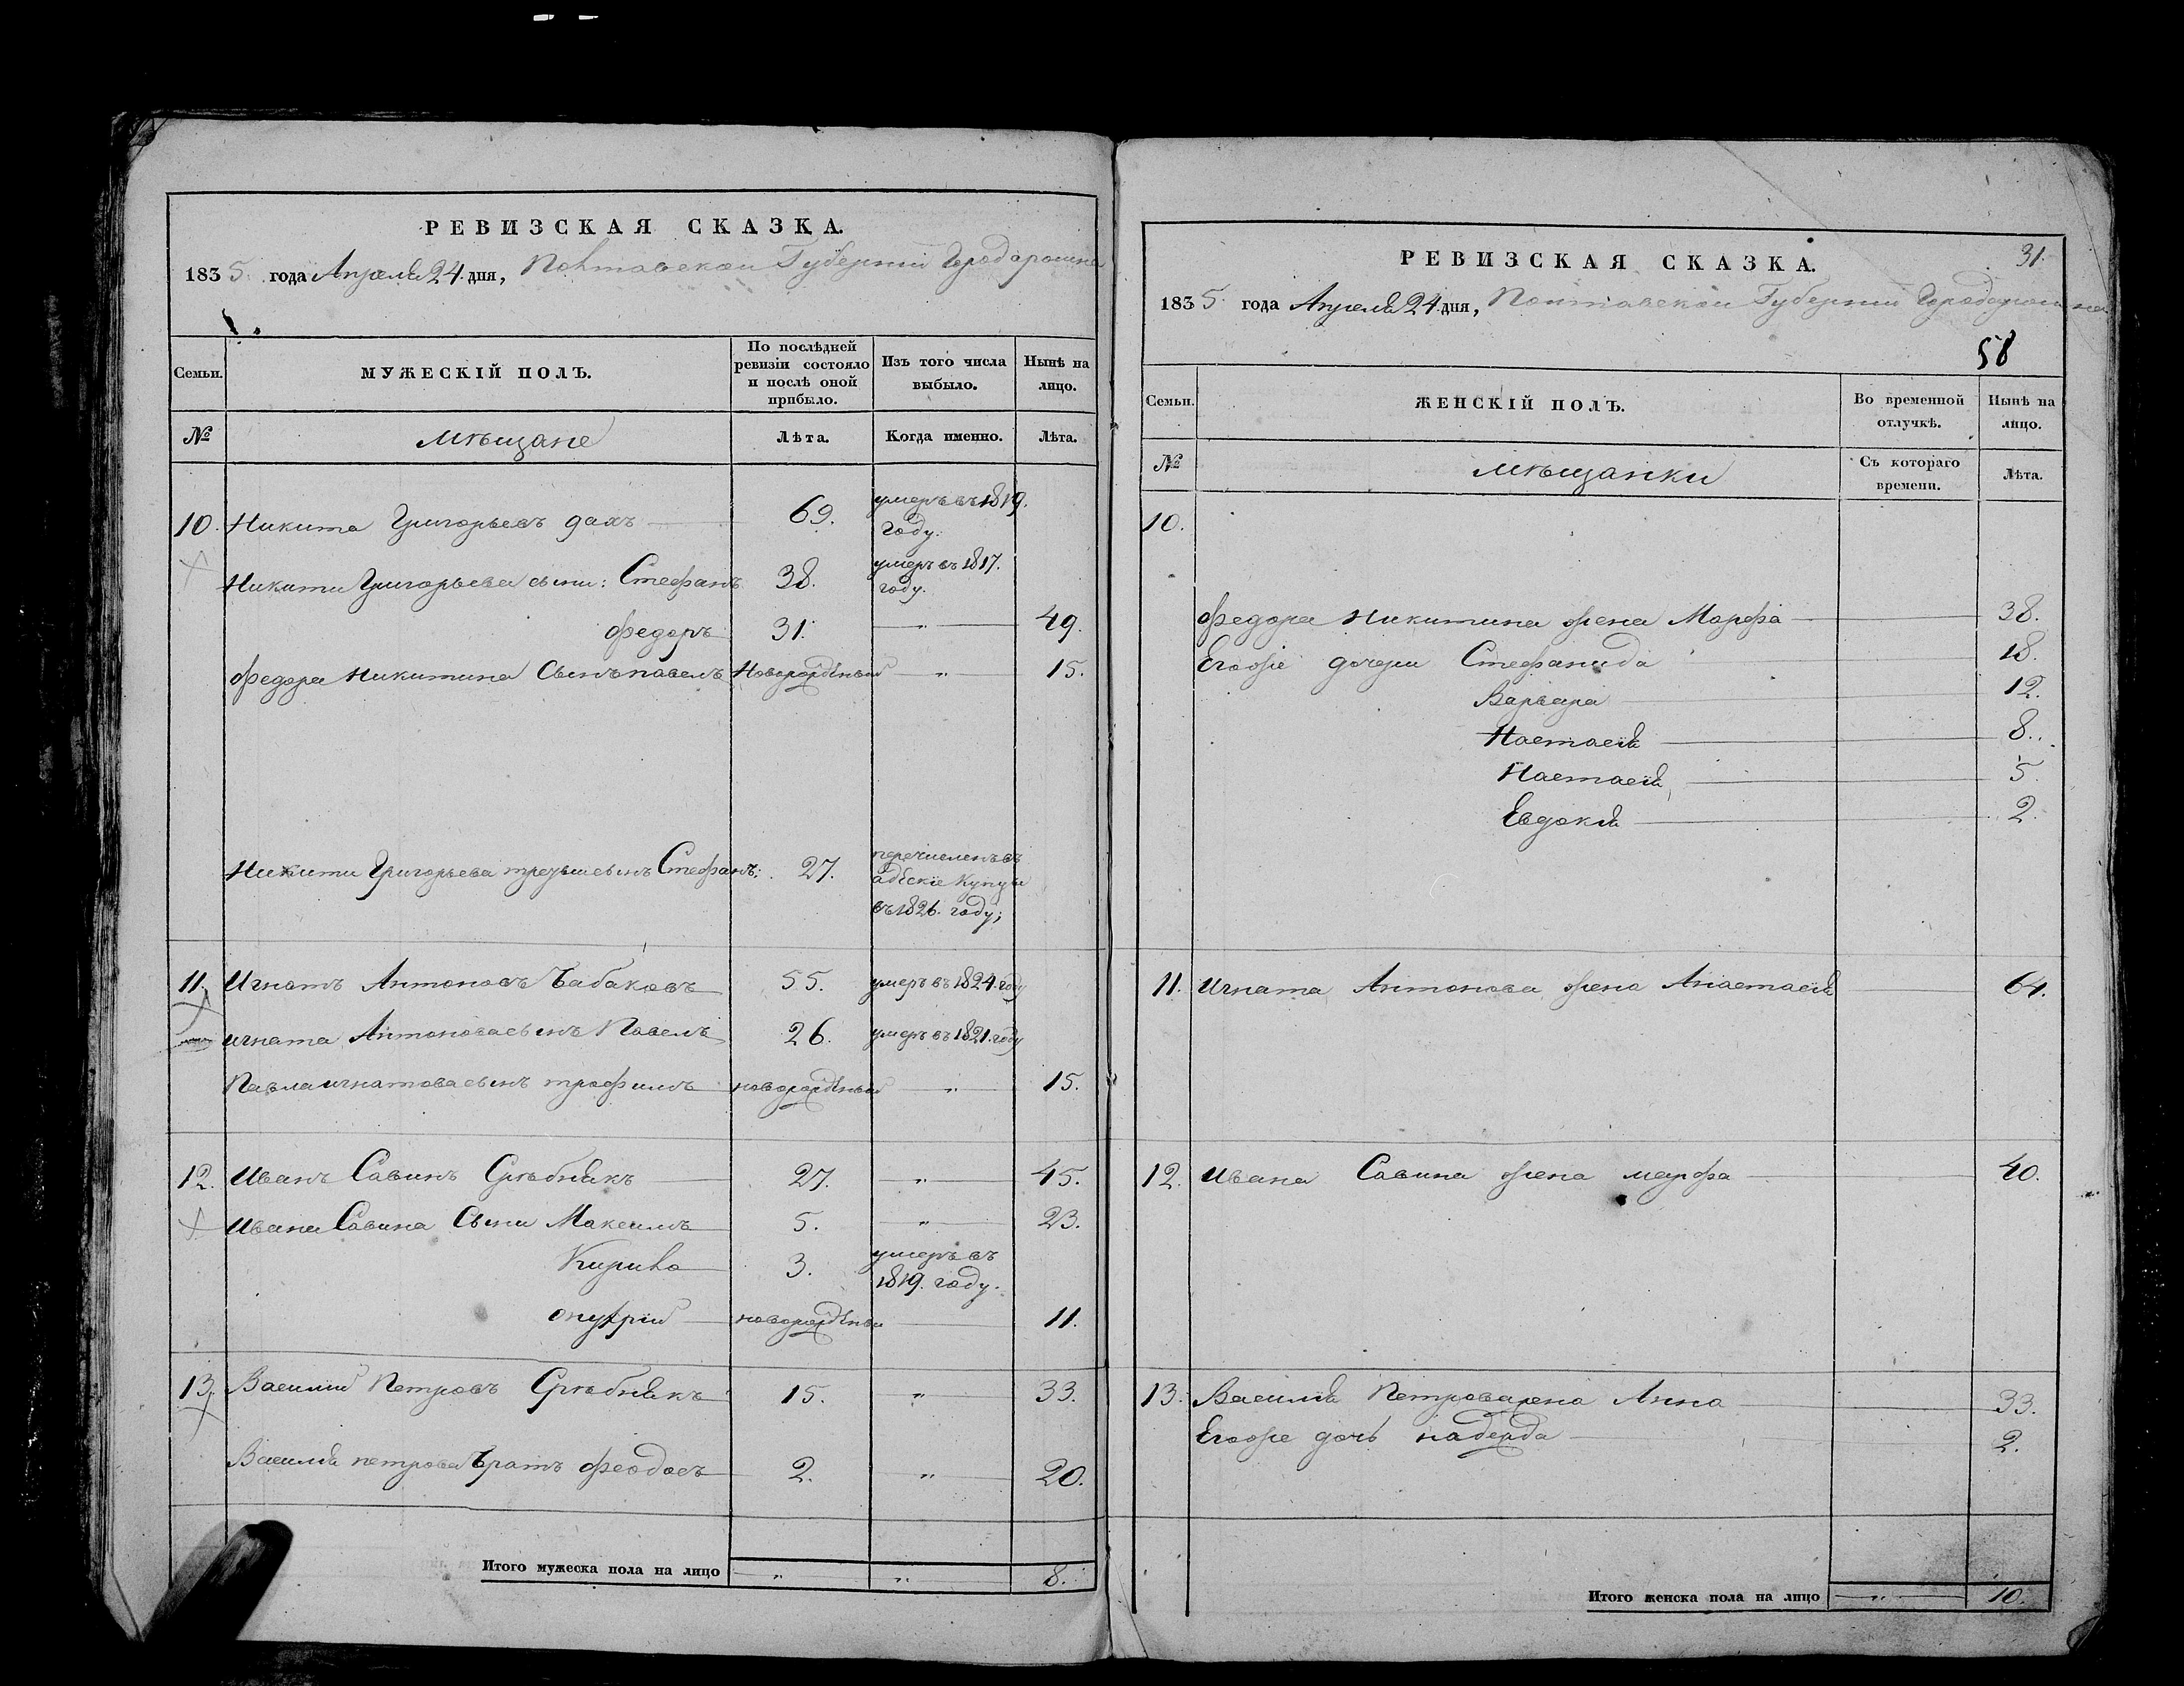 РЕВИЗСКАЯ СКАЗКА.
1835 года Апреля 24 дня, Полтавской Губернии Города ромна
Семьи. МУЖЕСКІЙ ПОЛЪ. По послѣдней ревизіи состояло и послѣ оной прибыло. Изъ того числа выбыло. Нынѣ на лицо.
№ мѣщане Лѣта. Когда именно. Лѣта.
10. Никита Григорьевъ дахъ 69. умеръ въ 1819. году.
Никити Григорьева сыни: Стефанъ 38. умеръ въ 1817. году.
федоръ 31. " 49.
федора никитина Сынъ павелъ Новорождѣнъй " 15.
Никити Григорьева третьи сынъ Стефанъ: 27. перечисленъ въ адескіе Купцы въ 1826. году;
11. Игнатъ Антоновъ Бабаковъ 55. умеръ въ 1824. году
игната Антонова сынъ Павелъ 26. умеръ въ 1821. году
Павла игнатова сынъ трофимъ новорождѣнъй " 15.
12. Иванъ Савинъ Срѣбнякъ 27. " 45.
Ивана Савина Сыни Максимъ 5. " 23.
Кирило 3. умеръ въ 1819. году.
онуфрій новорождѣнъи 11.
13. Василий Петровъ Срѣбнякъ 15. " 33.
Василя петрова братъ феодосъ 2. " 20.
Итого мужеска пола на лицо " " 8.
31.
РЕВИЗСКАЯ СКАЗКА.
1835 года Апреля 24 дня, Полтавской Губерніи Города ромна
58
Семьи. ЖЕНСКІЙ ПОЛЪ. Во временной отлучкѣ. Нынѣ на лицо.
№ мѣщанки Съ котораго времени. Лѣта.
10.
федора никитина жена Марфа 38.
Егоже дочери Стефанида 18.
Варвара 12.
Настасія 8.
Настасія 5.
Евдокія 2.
11. Игната Антонова жена Анастасія 64.
12. Ивана Савина жена марфа 40.
13. Василя Петрова жена Анна 33.
Егоже дочь надежда 2.
Итого женска пола на лицо " 10.